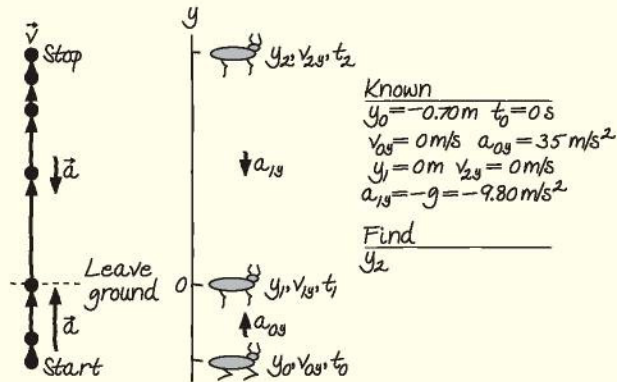 v⃗
Stop
a⃗
Leave
ground
a⃗
Start
y
y₂, v₂y, t₂
a₁y
0
y₁, v₁y, t₁
a₀y
y₀, v₀y, t₀
Known
y₀ = −0.70 m t₀ = 0 s
v₀y = 0 m/s a₀y = 35 m/s²
y₁ = 0 m v₂y = 0 m/s
a₁y = −g = −9.80 m/s²
Find
y₂